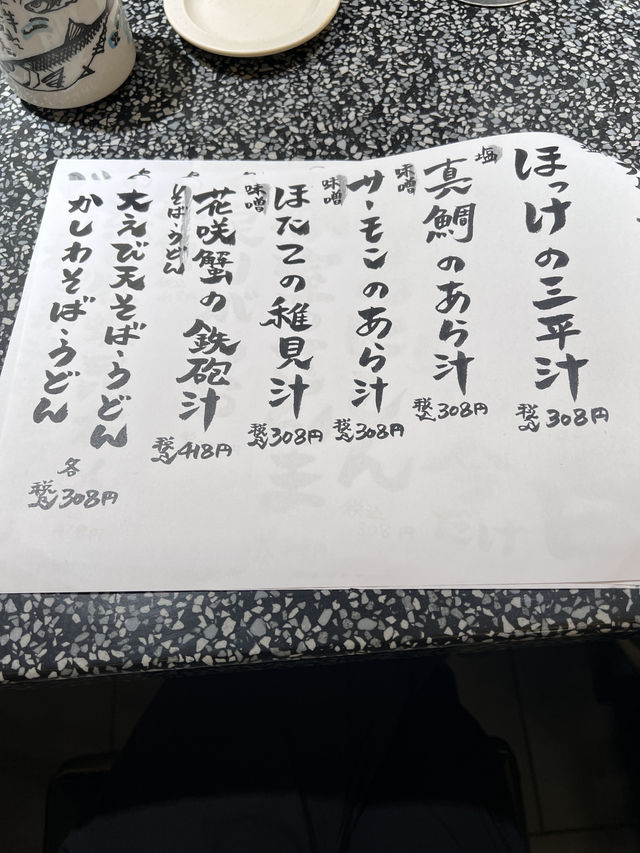 ほっけの三平汁
税込308円
塩
真鯛のあら汁
税込308円
味噌
サーモンのあら汁
税込308円
味噌
ほたての稚貝汁
税込308円
味噌
花咲蟹の鉄砲汁
税込418円
そば・うどん
大えび天そば・うどん
かしわそば・うどん
各
税込308円